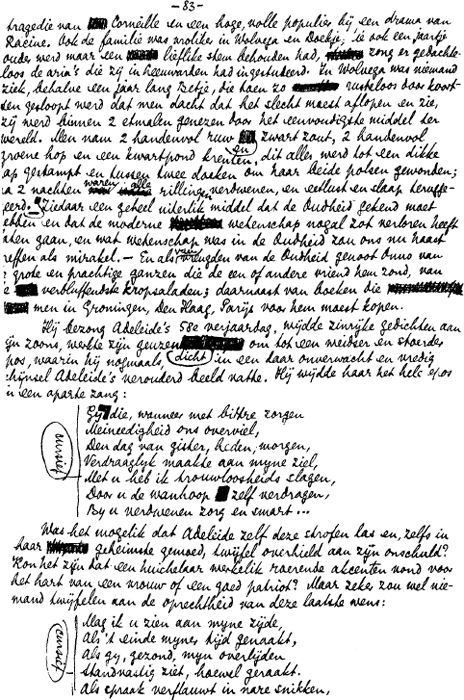 — 83 —
tragedie van Corneille en een hoge, volle populier bij een drama van
Racine. Ook de familie was vrolijk in Wolvega en Boekje; zie ook een jaartje
ouder werd maar een lieflijke stem behouden had, zong er gedachte-
loos de aria's die zij in Leeuwarden had ingestudeerd. In Wolvega was niemand
ziek, behalve een jaar lang Betje, die toen zo rusteloos door koort-
sen gesloopt werd dat men dacht dat het slecht moest aflopen en zie,
zij werd binnen 2 etmalen genezen door het eenvoudigste middel ter
wereld. Men nam 2 handenvol ruw zwart zout, 2 handenvol
groene hop en een kwartpond krenten, dit alles werd tot een dikke
pap gestampt en tussen twee doeken om haar beide polsen gewonden;
na 2 nachten waren alle rillingen verdwenen, en eetlust en slaap terugge-
keerd. — Ziedaar een geheel uiterlijk middel dat de Oudheid gekend moet
hebben en dat de moderne wetenschap nogal zot verloren heeft
laten gaan, en wat wetenschap was in de Oudheid zou ons nu haast
treffen als mirakel. — En als van de Oudheid genoot Onno van
de grote en prachtige ganzen die de een of andere vriend hem zond, van
de verbluffendste kropsaladen; daarnaast van boeken die
men in Groningen, Den Haag, Parijs voor hem moest kopen.
Hij bezong Adeleide's 58e verjaardag, wijdde zinrijke gedichten aan
zijn zoons, werkte zijn geuzen om tot een weidser en stoerder
epos, waarin hij nogmaals, dicht in een daar onverwacht en vredig
rijmsel Adeleide's verouderd beeld vatte. Hij wijdde haar het hele epos
in een aparte zang:
cursief
Gy die, wanneer met bittre zorgen
Meineedigheid ons overviel,
Den dag van gister, heden, morgen,
Verdraaglyk maakte aan myne ziel,
Met u heb ik trouwloosheids slagen,
Door u de wanhoop zelf verdragen,
By u verdwenen zorg en smart...
Was het mogelijk dat Adeleide zelf deze strofen las en, zelfs in
haar geheimste gemoed, twijfel overhield aan zijn onschuld?
Kon het zijn dat een huichelaar werkelijk roerende akcenten vond voor
het hart van een vrouw of een goed patriot? Maar zeker zou wel nie-
mand twijfelen aan de oprechtheid van deze laatste wens:
cursief
Mag ik u zien aan myne zyde,
Als 't einde myner tyd genaakt,
Als gy, gezond, myn overlyden
Standvastig ziet, hoewel geraakt.
Als spraak verflauwt in nare snikken,